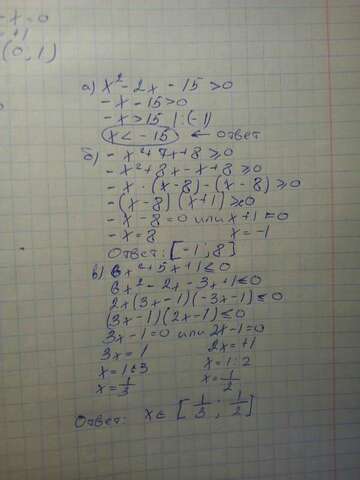 - x = 0
+1
(0, 1)
а) x² - 2x - 15 > 0
- x - 15 > 0
- x > 15 | : (-1)
x < - 15 ← ответ
б) - x² + 7x + 8 ≥ 0
- x² + 8x - x + 8 ≥ 0
- x · (x - 8) - (x - 8) ≥ 0
- (x - 8) (x + 1) ≥ 0
- x - 8 = 0 или x + 1 = 0
- x = 8 x = - 1
Ответ: [- 1 ; 8]
в) 6x² + 5x + 1 ≤ 0
6x² - 2x - 3x + 1 ≤ 0
2x (3x - 1) (- 3x - 1) ≤ 0
(3x - 1) (2x - 1) ≤ 0
3x - 1 = 0 или 2x - 1 = 0
3x = 1 2x = +1
x = 1 : 3 x = 1 : 2
x = 1/3 x = 1/2
Ответ: x ∈ [1/3 ; 1/2]